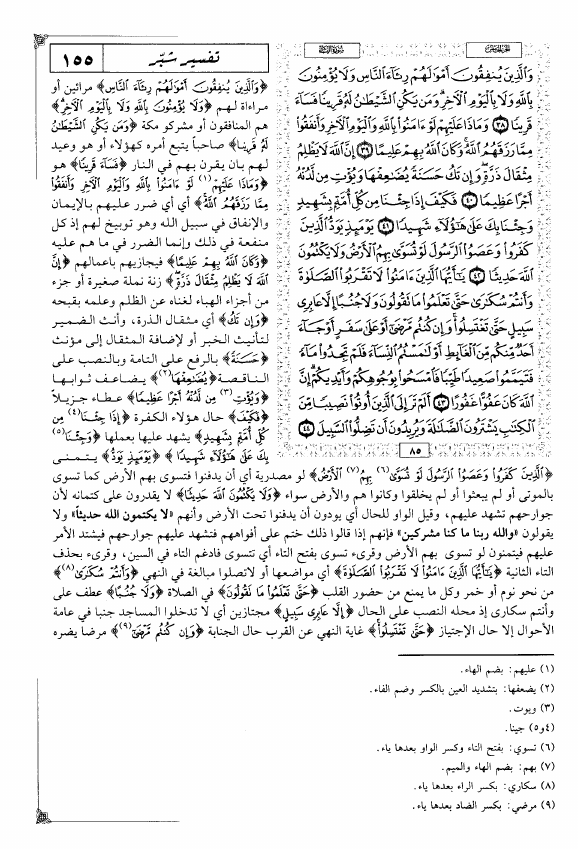 تفسير شبّر
١٥٥
سورة النساء
الجزء الخامس
وَالَّذِينَ يُنفِقُونَ أَمْوَالَهُمْ رِئَاءَ النَّاسِ وَلَا يُؤْمِنُونَ
بِاللَّهِ وَلَا بِالْيَوْمِ الْآخِرِ وَمَن يَكُنِ الشَّيْطَانُ لَهُ قَرِينًا فَسَاءَ
قَرِينًا ٣٨ وَمَاذَا عَلَيْهِمْ لَوْ ءَامَنُوا بِاللَّهِ وَالْيَوْمِ الْآخِرِ وَأَنفَقُوا
مِمَّا رَزَقَهُمُ اللَّهُ وَكَانَ اللَّهُ بِهِمْ عَلِيمًا ٣٩ إِنَّ اللَّهَ لَا يَظْلِمُ
مِثْقَالَ ذَرَّةٍ وَإِن تَكُ حَسَنَةً يُضَاعِفْهَا وَيُؤْتِ مِن لَّدُنْهُ
أَجْرًا عَظِيمًا ٤٠ فَكَيْفَ إِذَا جِئْنَا مِن كُلِّ أُمَّةٍ بِشَهِيدٍ
وَجِئْنَا بِكَ عَلَى هَٰؤُلَاءِ شَهِيدًا ٤١ يَوْمَئِذٍ يَوَدُّ الَّذِينَ
كَفَرُوا وَعَصَوُا الرَّسُولَ لَوْ تُسَوَّى بِهِمُ الْأَرْضُ وَلَا يَكْتُمُونَ
اللَّهَ حَدِيثًا ٤٢ يَا أَيُّهَا الَّذِينَ ءَامَنُوا لَا تَقْرَبُوا الصَّلَوٰةَ
وَأَنتُمْ سُكَارَى حَتَّى تَعْلَمُوا مَا تَقُولُونَ وَلَا جُنُبًا إِلَّا عَابِرِي
سَبِيلٍ حَتَّى تَغْتَسِلُوا وَإِن كُنتُم مَّرْضَى أَوْ عَلَى سَفَرٍ أَوْ جَاءَ
أَحَدٌ مِّنكُم مِّنَ الْغَائِطِ أَوْ لَامَسْتُمُ النِّسَاءَ فَلَمْ تَجِدُوا مَاءً
فَتَيَمَّمُوا صَعِيدًا طَيِّبًا فَامْسَحُوا بِوُجُوهِكُمْ وَأَيْدِيكُمْ إِنَّ
اللَّهَ كَانَ عَفُوًّا غَفُورًا ٤٣ أَلَمْ تَرَ إِلَى الَّذِينَ أُوتُوا نَصِيبًا مِّنَ
الْكِتَابِ يَشْتَرُونَ الضَّلَالَةَ وَيُرِيدُونَ أَن تَضِلُّوا السَّبِيلَ ٤٤
٨٥
﴿وَالَّذِينَ يُنفِقُونَ أَمْوَالَهُمْ رِئَاءَ النَّاسِ﴾ مرائين أو
مراءاة لهم ﴿وَلَا يُؤْمِنُونَ بِاللَّهِ وَلَا بِالْيَوْمِ الْآخِرِ﴾
هم المنافقون أو مشركو مكة ﴿وَمَن يَكُنِ الشَّيْطَانُ
لَهُ قَرِينًا﴾ صاحباً يتبع أمره كهؤلاء أو هو وعيد
لهم بان يقرن بهم في النار ﴿فَسَاءَ قَرِينًا﴾ هو
﴿وَمَاذَا عَلَيْهِمْ(١) لَوْ ءَامَنُوا بِاللَّهِ وَالْيَوْمِ الْآخِرِ وَأَنفَقُوا
مِمَّا رَزَقَهُمُ اللَّهُ﴾ أي أي ضرر عليهم بالإيمان
والإنفاق في سبيل الله وهو توبيخ لهم إذ كل
منفعة في ذلك وإنما الضرر في ما هم عليه
﴿وَكَانَ اللَّهُ بِهِمْ عَلِيمًا﴾ فيجازيهم باعمالهم ﴿إِنَّ
اللَّهَ لَا يَظْلِمُ مِثْقَالَ ذَرَّةٍ﴾ زنة نملة صغيرة أو جزء
من أجزاء الهباء لغناه عن الظلم وعلمه بقبحه
﴿وَإِن تَكُ﴾ أي مثقال الذرة، وأنث الضمير
لتأنيث الخبر أو لإضافة المثقال إلى مؤنث
﴿حَسَنَةً﴾ بالرفع على التامة وبالنصب على
الناقصة ﴿يُضَاعِفْهَا(٢)﴾ يضاعف ثوابها
﴿وَيُؤْتِ(٣) مِن لَّدُنْهُ أَجْرًا عَظِيمًا﴾ عطاء جزيلاً
﴿فَكَيْفَ﴾ حال هؤلاء الكفرة ﴿إِذَا جِئْنَا(٤) مِن
كُلِّ أُمَّةٍ بِشَهِيدٍ﴾ يشهد عليها بعملها ﴿وَجِئْنَا(٥)
بِكَ عَلَى هَٰؤُلَاءِ شَهِيدًا﴾ ﴿يَوْمَئِذٍ يَوَدُّ﴾ يتمنى
﴿الَّذِينَ كَفَرُوا وَعَصَوُا الرَّسُولَ لَوْ تُسَوَّى(٦) بِهِمُ(٧) الْأَرْضُ﴾ لو مصدرية أي أن يدفنوا فتسوى بهم الأرض كما تسوى
بالموتى أو لم يبعثوا أو لم يخلقوا وكانوا هم والأرض سواء ﴿وَلَا يَكْتُمُونَ اللَّهَ حَدِيثًا﴾ لا يقدرون على كتمانه لأن
جوارحهم تشهد عليهم، وقيل الواو للحال أي يودون أن يدفنوا تحت الأرض وأنهم «لا يكتمون الله حديثاً» ولا
يقولون «والله ربنا ما كنا مشركين» فإنهم إذا قالوا ذلك ختم على أفواههم فتشهد عليهم جوارحهم فيشتد الأمر
عليهم فيتمنون لو تسوى بهم الأرض وقرىء تسوى بفتح التاء أي تتسوى فادغم التاء في السين، وقرىء بحذف
التاء الثانية ﴿يَا أَيُّهَا الَّذِينَ ءَامَنُوا لَا تَقْرَبُوا الصَّلَوٰةَ﴾ أي مواضعها أو لاتصلوا مبالغة في النهي ﴿وَأَنتُمْ سُكَارَى(٨)﴾
من نحو نوم أو خمر وكل ما يمنع من حضور القلب ﴿حَتَّى تَعْلَمُوا مَا تَقُولُونَ﴾ في الصلاة ﴿وَلَا جُنُبًا﴾ عطف على
وأنتم سكارى إذ محله النصب على الحال ﴿إِلَّا عَابِرِي سَبِيلٍ﴾ مجتازين أي لا تدخلوا المساجد جنبا في عامة
الأحوال إلا حال الإجتياز ﴿حَتَّى تَغْتَسِلُوا﴾ غاية النهي عن القرب حال الجنابة ﴿وَإِن كُنتُم مَّرْضَى(٩)﴾ مرضا يضره
(١) عليهم: بضم الهاء.
(٢) يضعفها: بتشديد العين بالكسر وضم الفاء.
(٣) ويوت.
(٤و٥) جينا.
(٦) تسوي: بفتح التاء وكسر الواو بعدها ياء.
(٧) بهم: بضم الهاء والميم.
(٨) سكاري: بكسر الراء بعدها ياء.
(٩) مرضي: بكسر الضاد بعدها ياء.